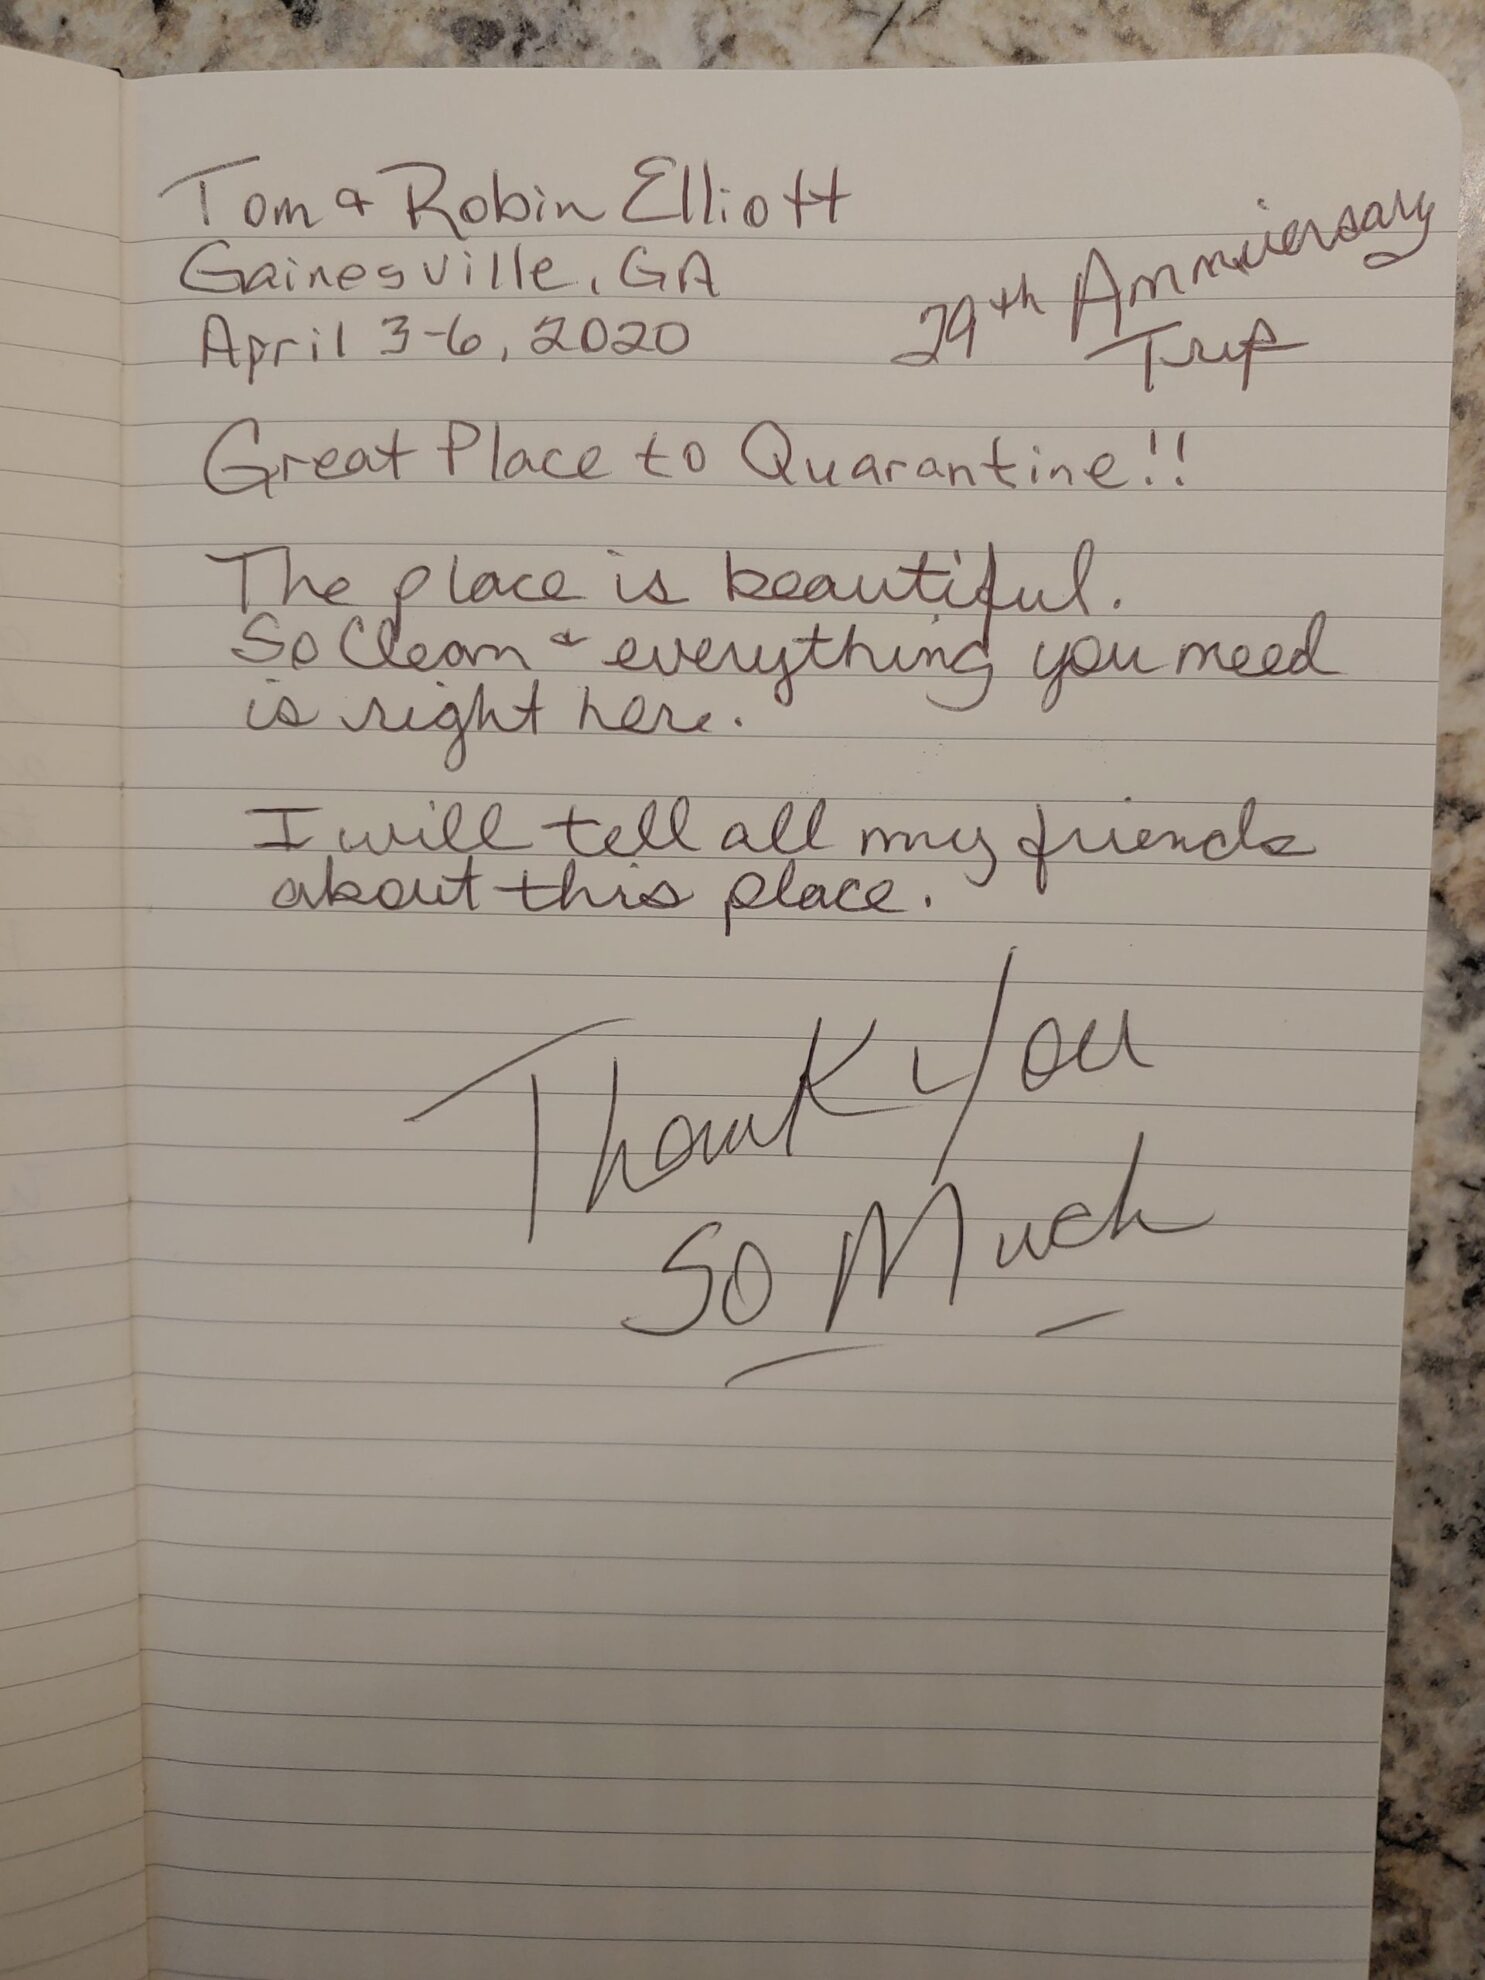 Tom & Robin Elliott
Gainesville, GA
April 3-6, 2020
29th Anniversary
Trip
Great Place to Quarantine!!
The place is beautiful.
So Clean & everything you need
is right here.
I will tell all my friends
about this place.
Thank You
So Much